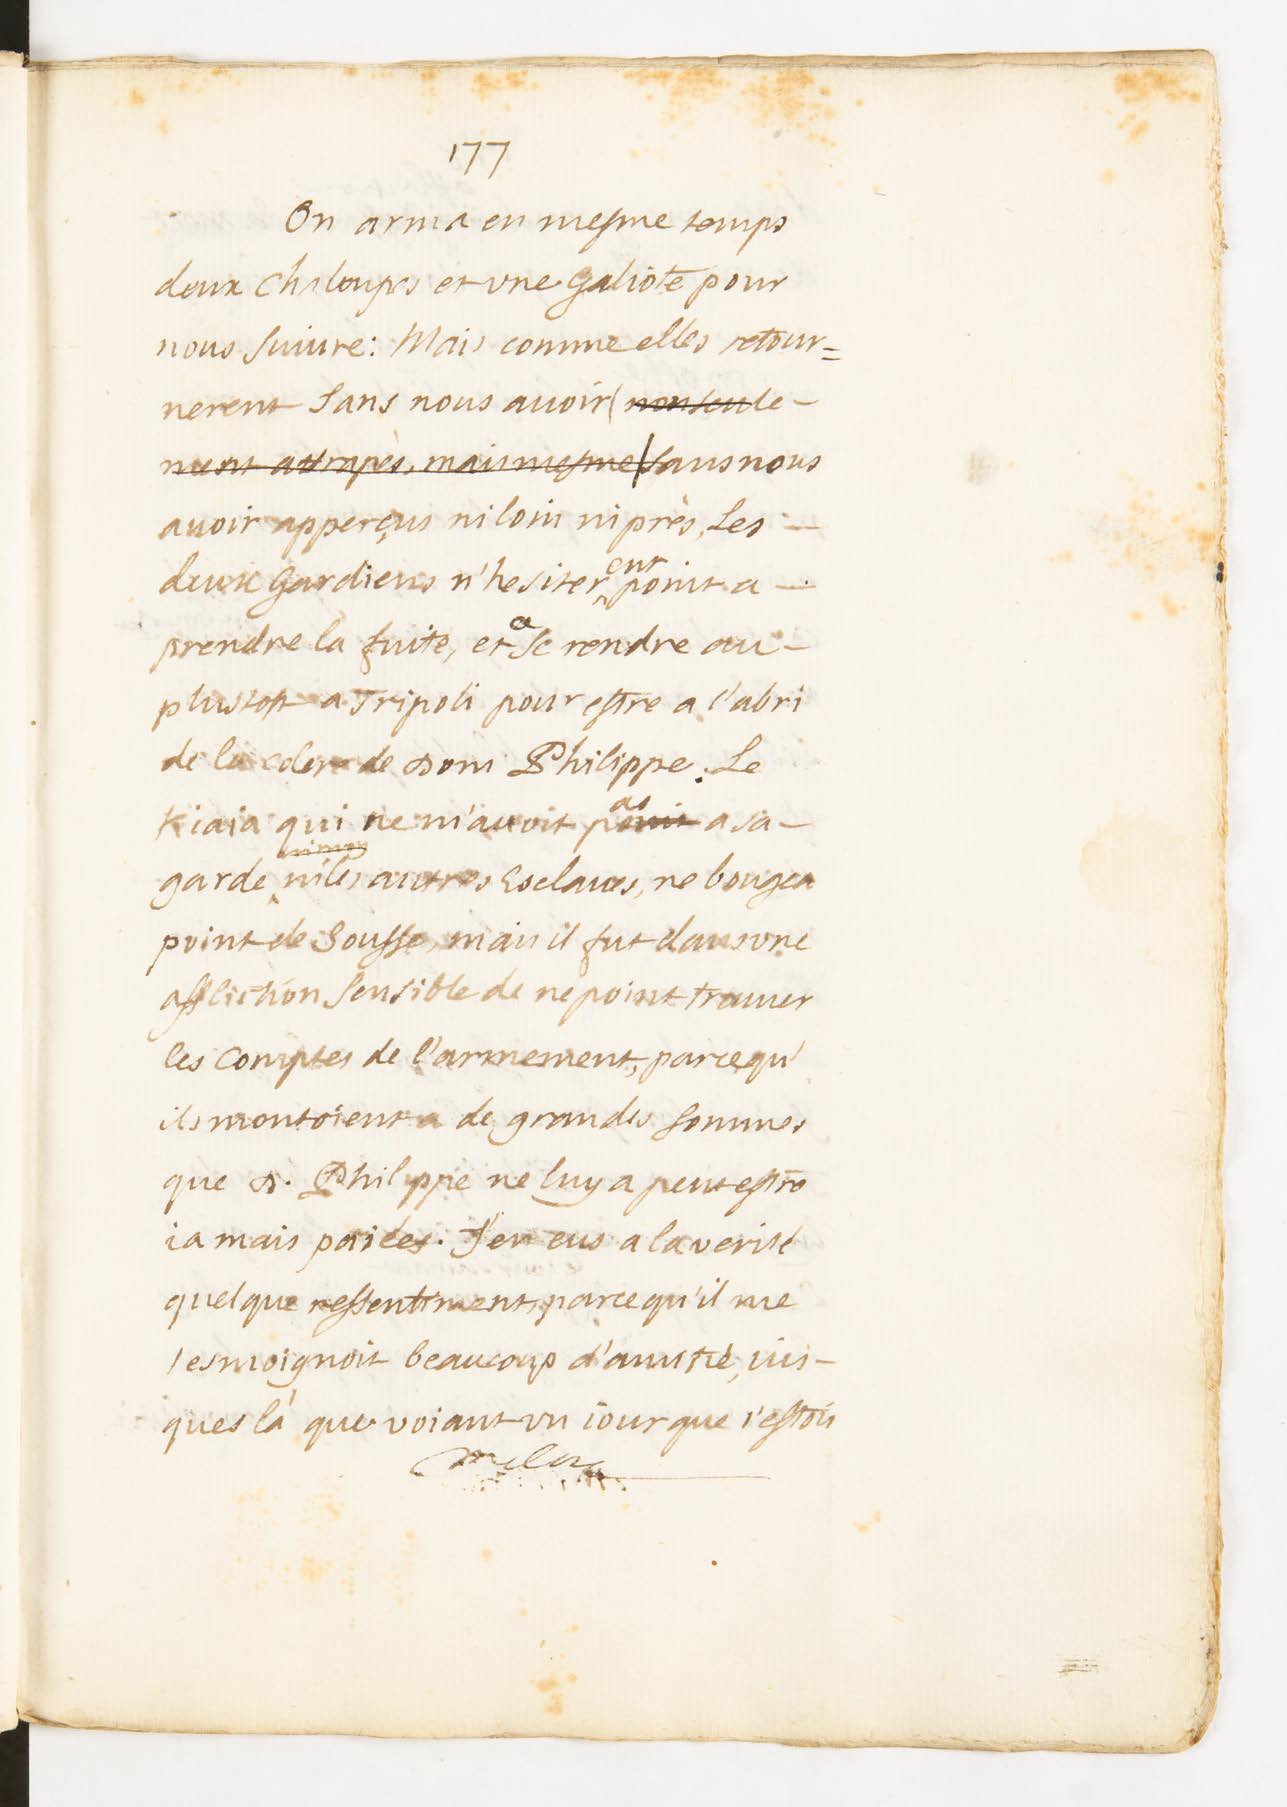 177
On arma en mesme temps
deux chaloupes et vne Galiote pour
nous suiure: Mais comme elles retour=
nerent sans nous auoir nonseule-
ment attrapés, mais mesme sans nous
auoir apperçus ni loin ni près, Les
deux Gardiens n'hesiterent point a
prendre la fuite, et a se rendre au-
plustost a Tripoli pour estre a l'abri
de la colere de Dom Philippe. Le
Kiaia qui ne m'auoit point pas a sa-
garde, ni moy ni les autres Esclaues, ne bougea
point de Sousse, mais il fut dans vne
affliction sensible de ne point trouuer
les Comptes de l'armement, parcequ'
ils montoient a de grandes sommes
que D. Philippe ne luy a peutestre
iamais paiées. J'en eus a la verité
quelque ressentiment, parcequ'il me
tesmoignoit beaucoup d'amitié, ius-
ques là que voiant vn iour que i'estois